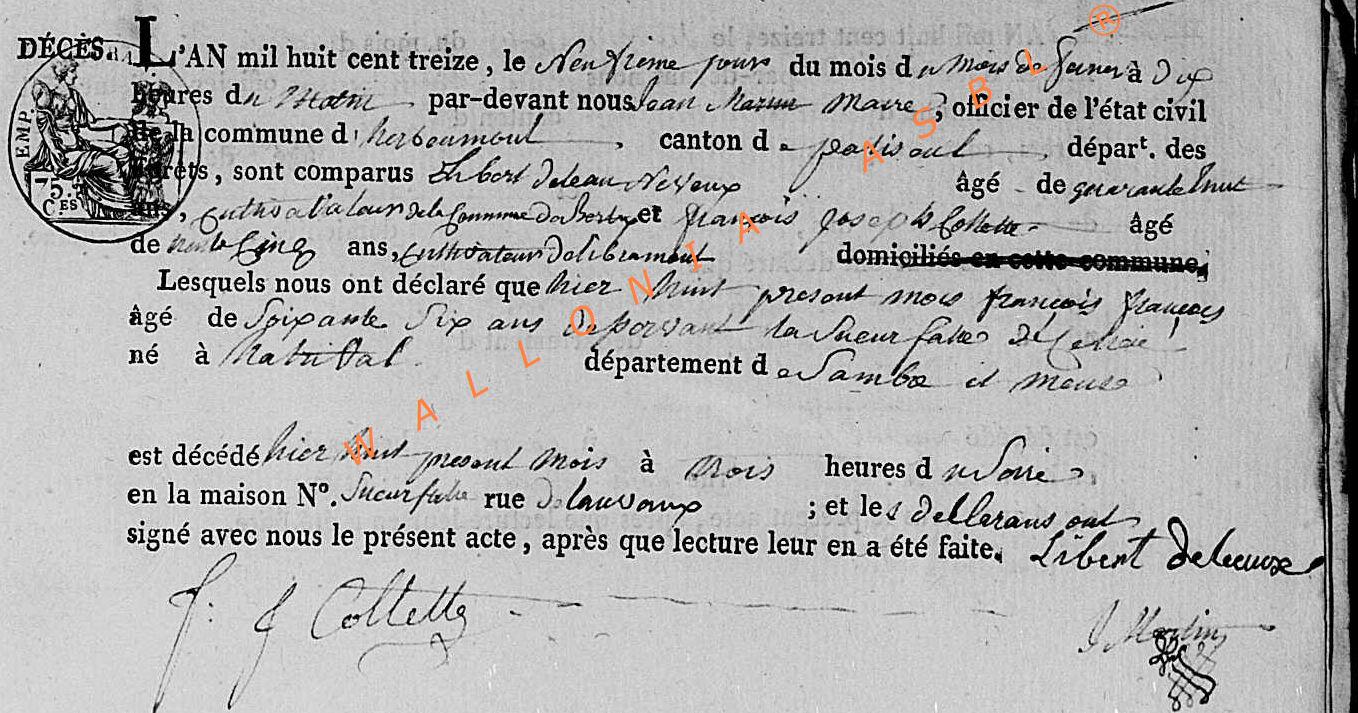 DÉCÈS. L'AN mil huit cent treize, le Neuvième jour du mois du Mois de Janvier à Dix
heures du Matin par-devant nous Jean Martin Maire, officier de l'état civil
de la commune d'herbeumont, canton de paliseul, départ. des
Forêts, sont comparus Libert âgé de quarante huit
ans, Cultivateur de la Commune de et françois joseph Collette âgé
de Cinq ans, Cultivateur De libramont domiciliés en cette commune,
Lesquels nous ont déclaré que hier huit present mois françois françois
âgé de Soixante Six ans la
né à département de Sambre et Meuse
est décédé hier huit present Mois à trois heures du Soir
en la maison N°. rue ; et les ont
signé avec nous le présent acte, après que lecture leur en a été faite. Libert
F. J Collette
J Martin
EMP.
75. CES
WALLONIA ASBL ®